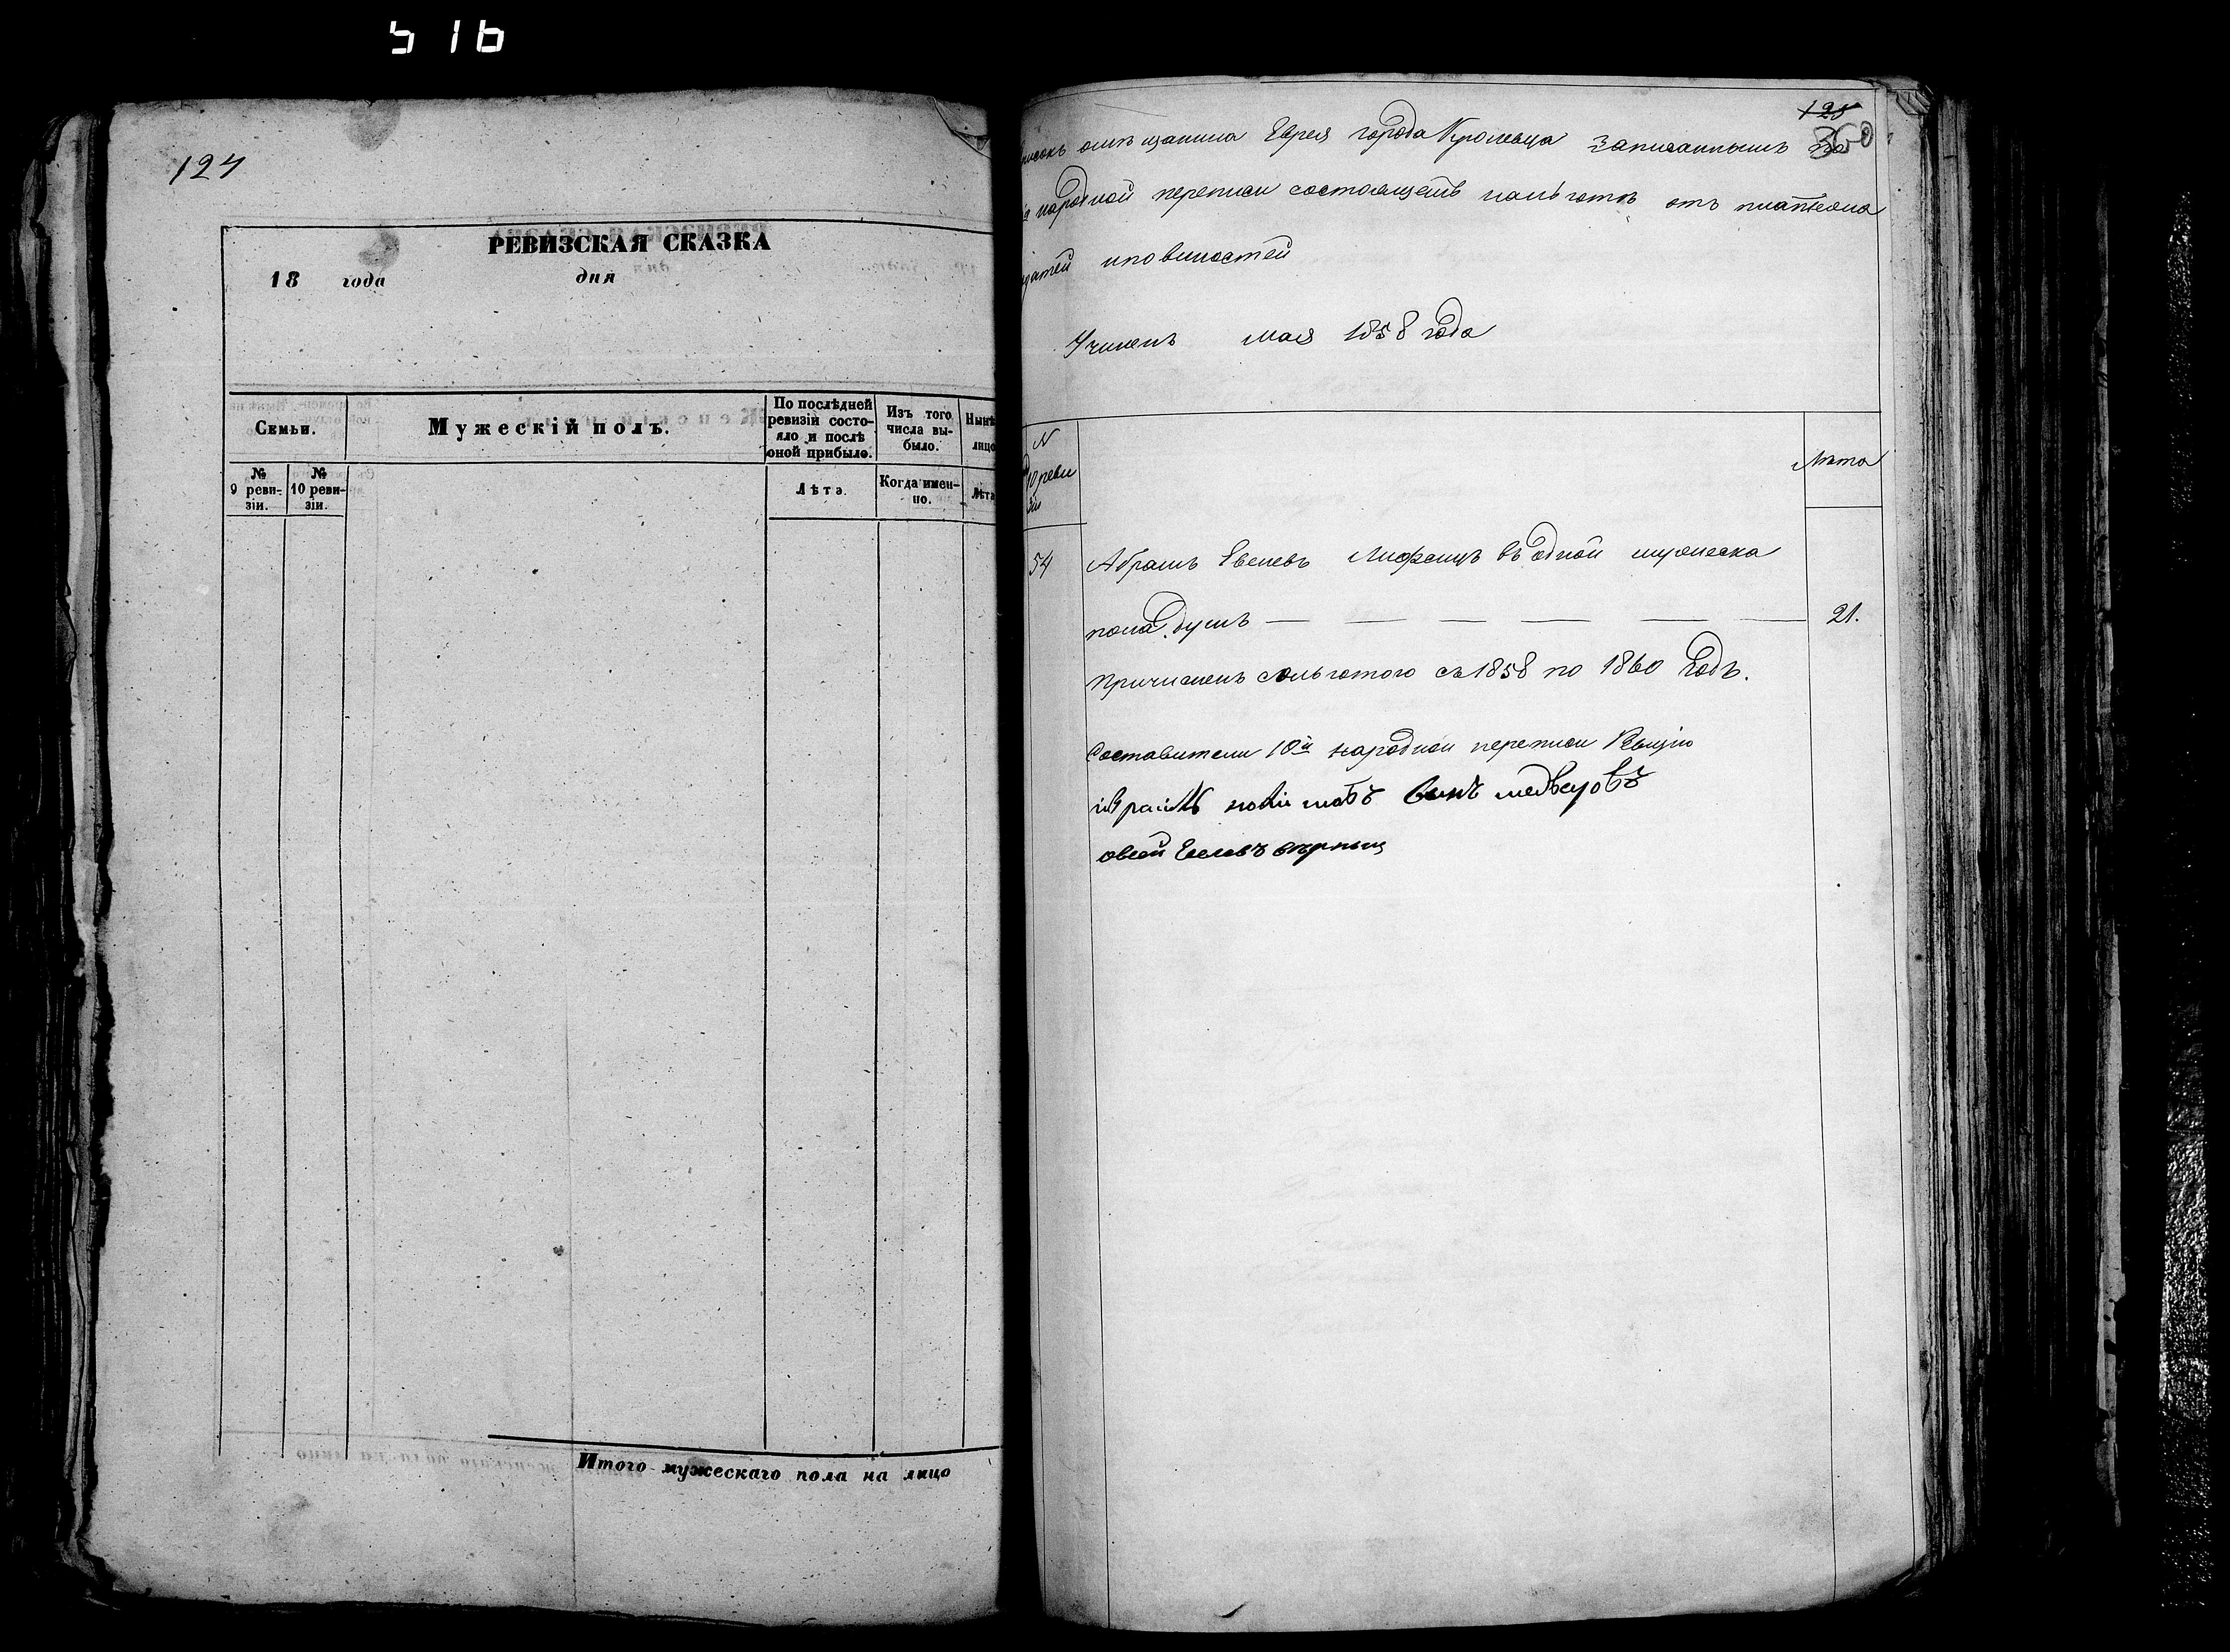 516
124
РЕВИЗСКАЯ СКАЗКА
18 года дня
Семьи.
Мужескій полъ.
По послѣдней ревизіи состояло и послѣ оной прибыло.
Изъ того числа выбыло.
Нынѣ лицо
№ 9 ревизіи.
№ 10 ревизіи.
Лѣта.
Когда именно.
Лѣта
Итого мужескаго пола на лицо
125
350
писокъ омѣщанина Еврея города Кролевца записаннымъ по
й народной переписи состоящемъ нальготѣ отъ платежа
датей иповиностей
Учиненъ мая 1858 года
N 10 реви зіи
Лѣта
54 Абрамъ Евелевъ Лифшицъ въ одной мужеска
пола душѣ — — — — — — 21.
Причисленъ сольготою съ 1858 по 1860 годъ.
Составители 10й народной переписи
овсей